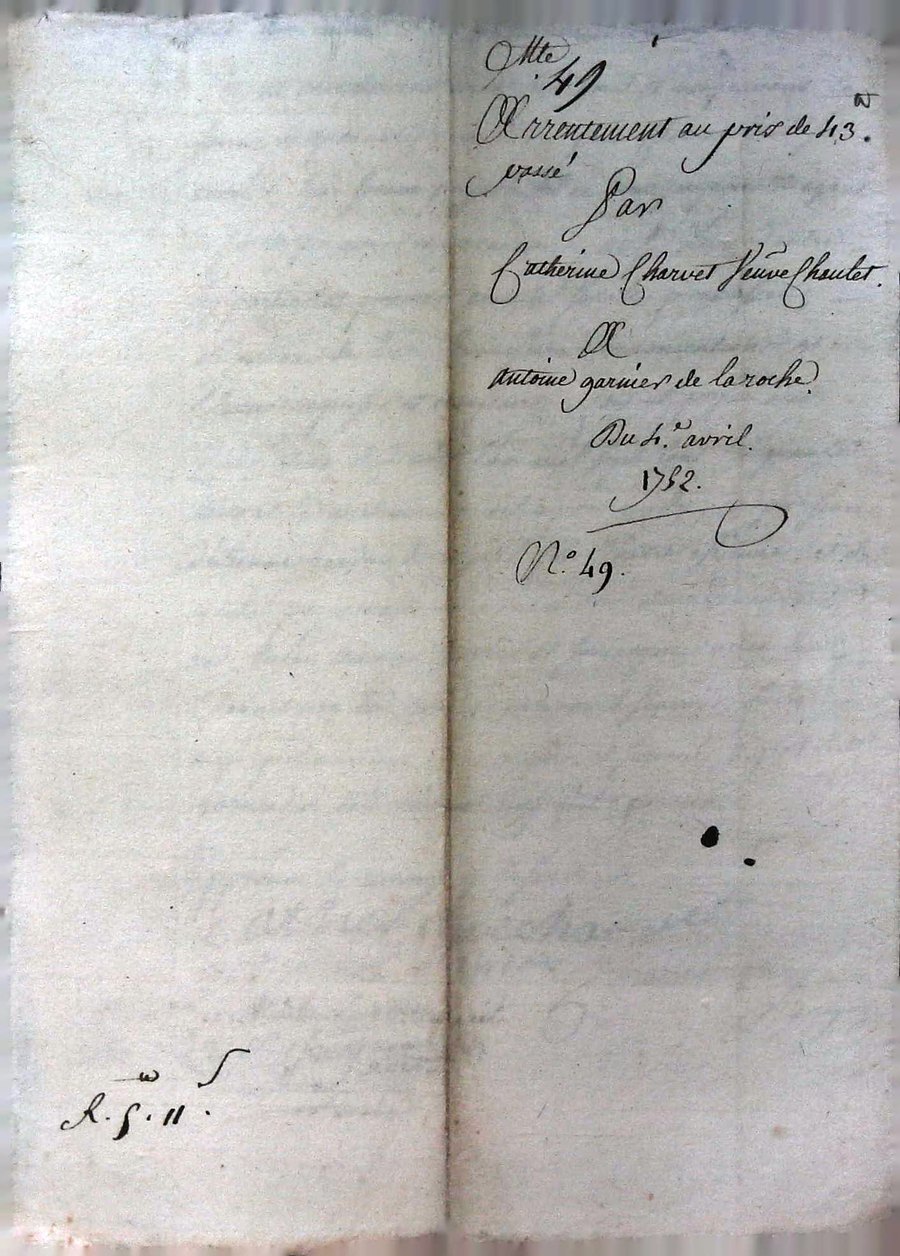 Mte
49
Arrentement au prix de 43 ₶.
passé
Par
Catherine Charvet Veuve Choulet.
A
antoine garnier de la roche.
Du 4.e avril.
1752.
N.o 49.
R. 5. 11.